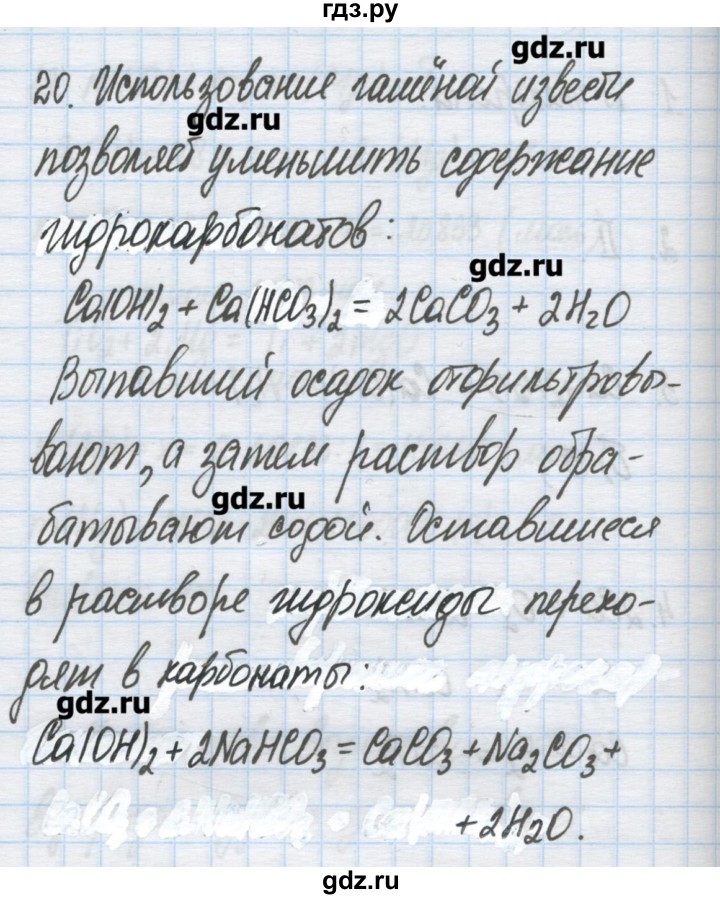 гдз.ру
gdz.ru
20. Использование гашёной извести
gdz.ru
позволяет уменьшить содержание
гидрокарбонатов:
gdz.ru
Ca(OH)₂ + Ca(HCO₃)₂ = 2CaCO₃ + 2H₂O
Выпавший осадок отфильтровы-
вают, а затем раствор обра-
gdz.ru
батывают содой. Оставшиеся
в растворе гидроксиды перехо-
дят в карбонаты:
gdz.ru
Ca(OH)₂ + 2NaHCO₃ = CaCO₃ + Na₂CO₃ +
+ 2H₂O.
gdz.ru